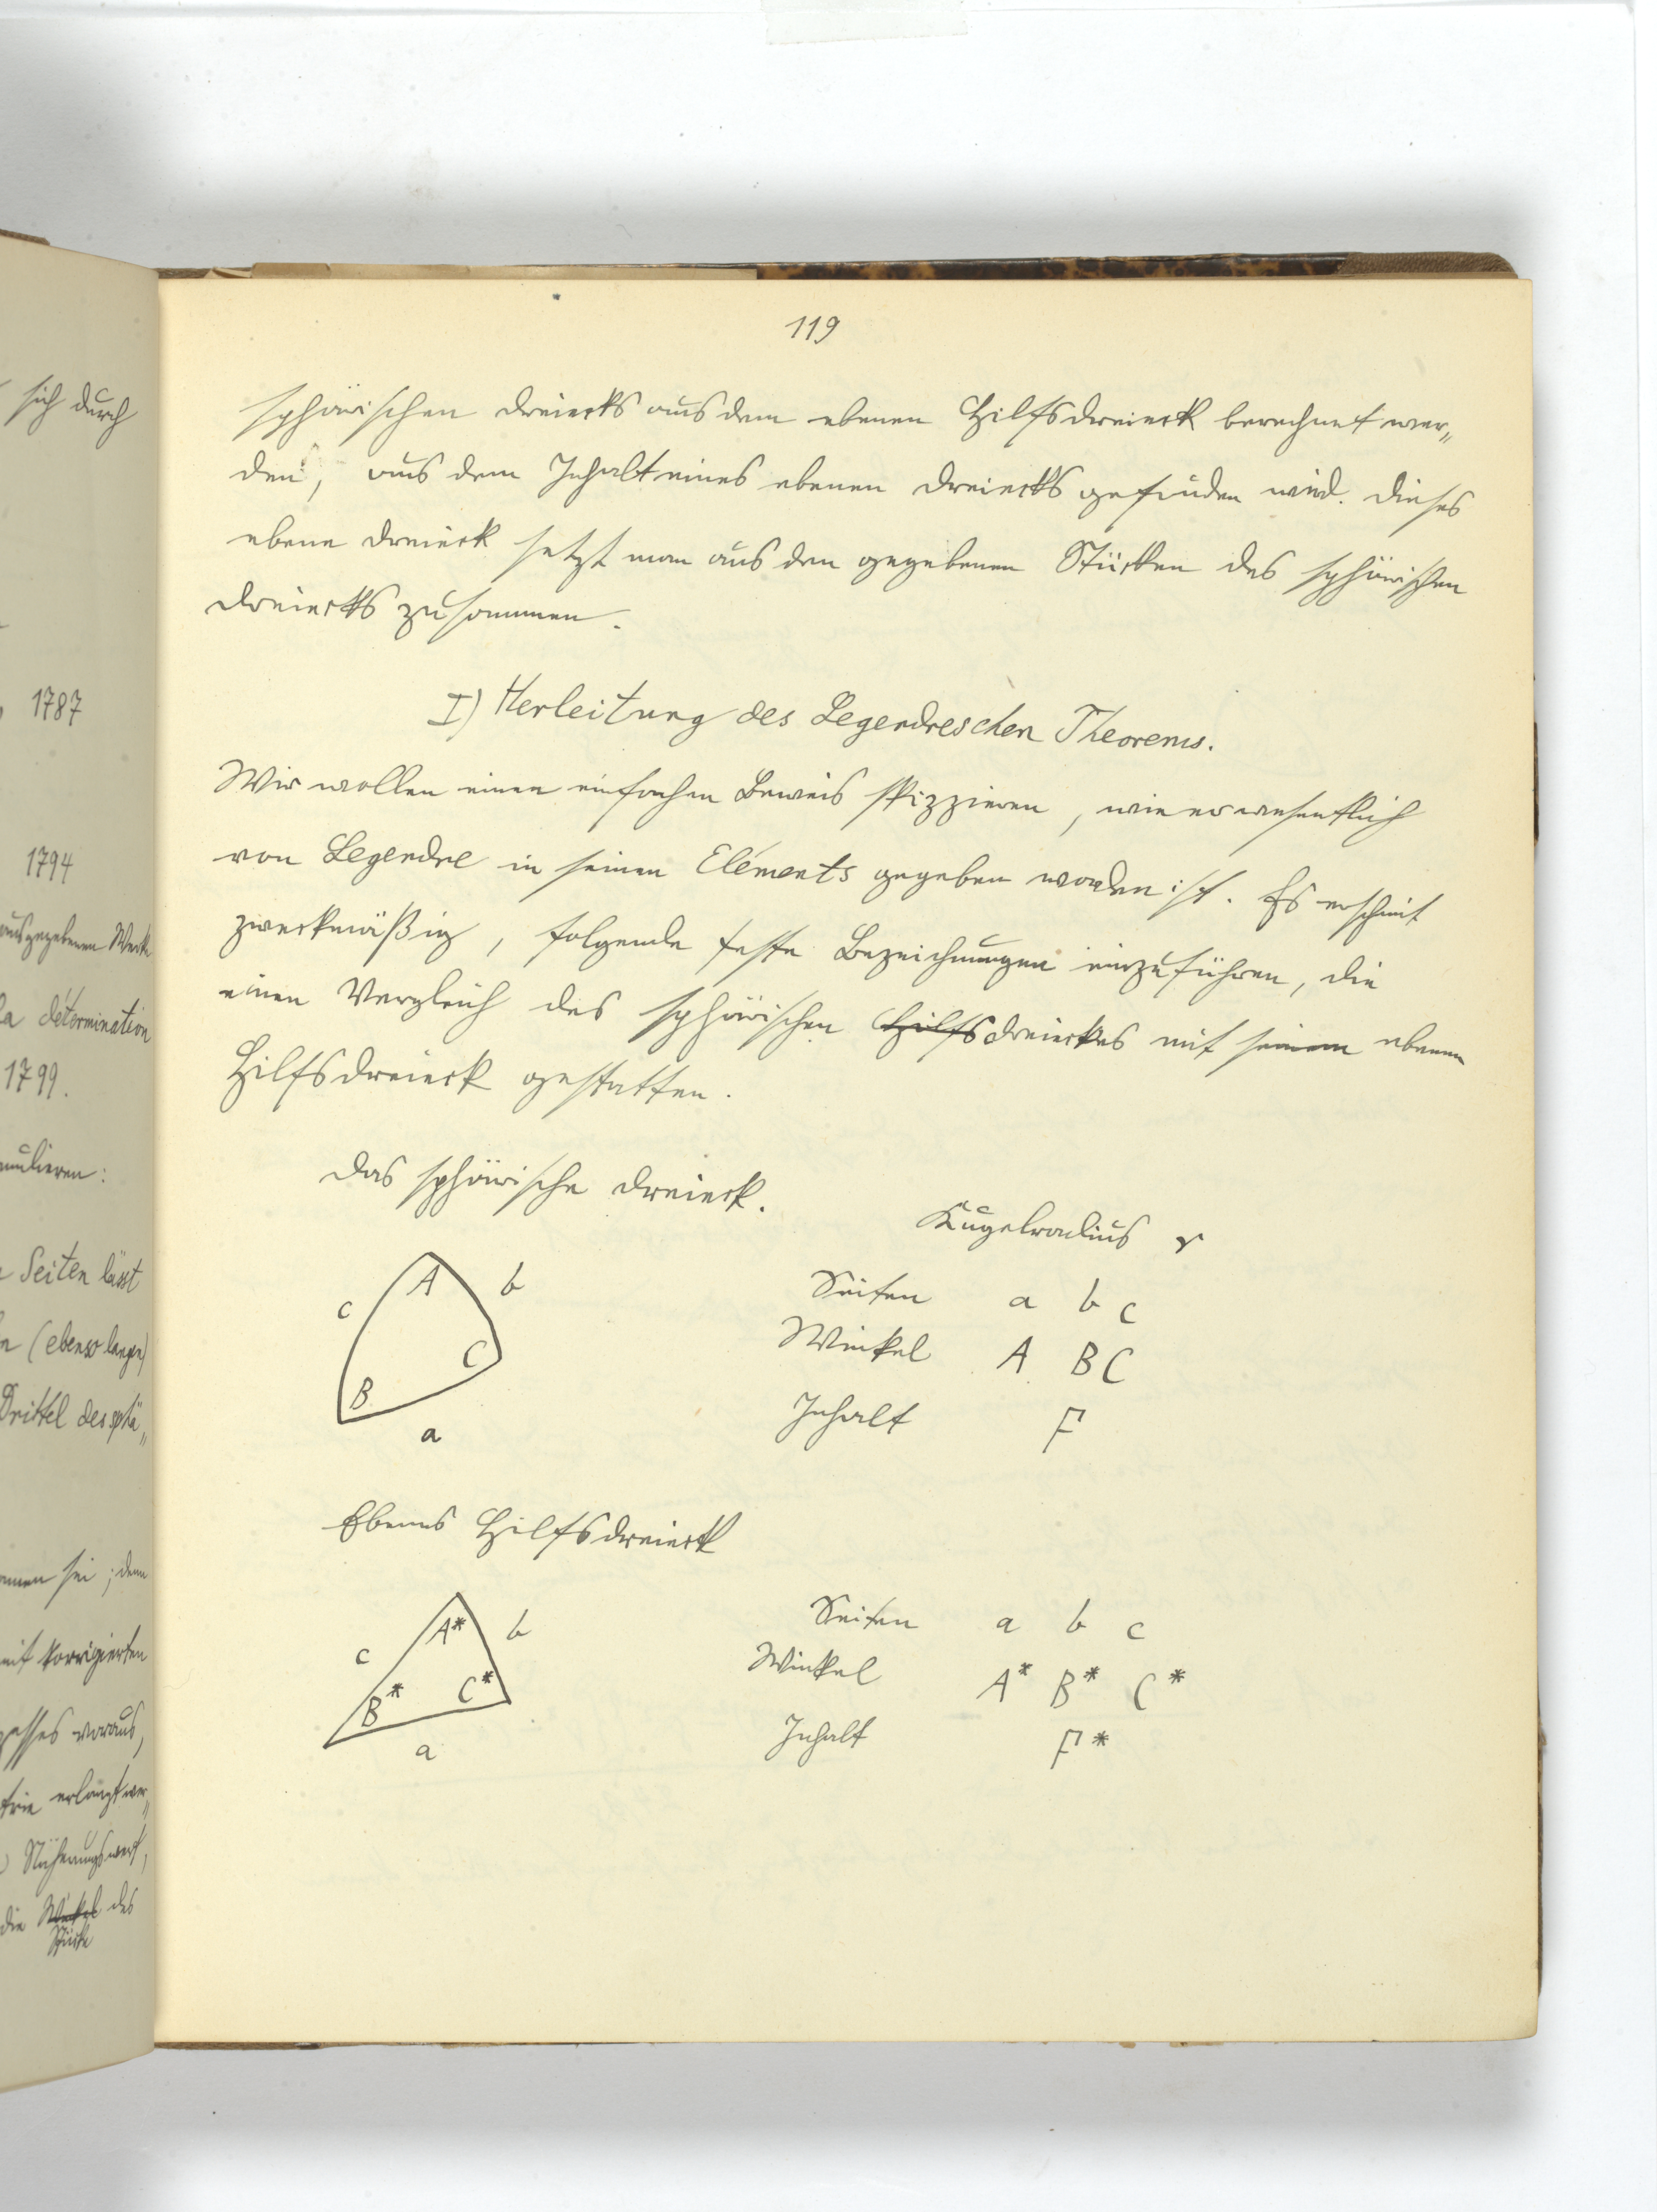 119
sphärischen Dreiecks aus dem ebenen Hilfsdreieck berechnet wer„
den, aus dem Inhalt eines ebenen Dreiecks gefunden wird. Dieses
ebene Dreieck setzt man aus den gegebenen Stücken des sphärischen
Dreiecks zusammen.
I) Herleitung des Legendreschen Theorems.
Wir wollen einen einfachen Beweis skizzieren, wie er wesentlich
von Legendre in seinen Eléments gegeben worden ist. Es erscheint
zweckmäßig, folgende feste Bezeichnungen einzuführen, die
einen Vergleich des sphärischen Hilfsdreieckes mit seinem ebenen
Hilfsdreieck gestatten.
Das sphärische Dreieck.
Kugelradius r
A b
c
C
B
a
Seiten a b c
Winkel A B C
Inhalt F
Ebenes Hilfsdreieck
A* b
c
B* C*
a
Seiten a b c
Winkel A* B* C*
Inhalt F*
sich durch
1787
1794
ausgegebenen Werke
la détermination
1799.
mulieren:
Seiten lässt
(ebenso langen)
Drittel des sphä„
sei; denn
mit korrigierten
voraus,
erlangt wer„
Näherungswert,
die Winkel des
Stücke